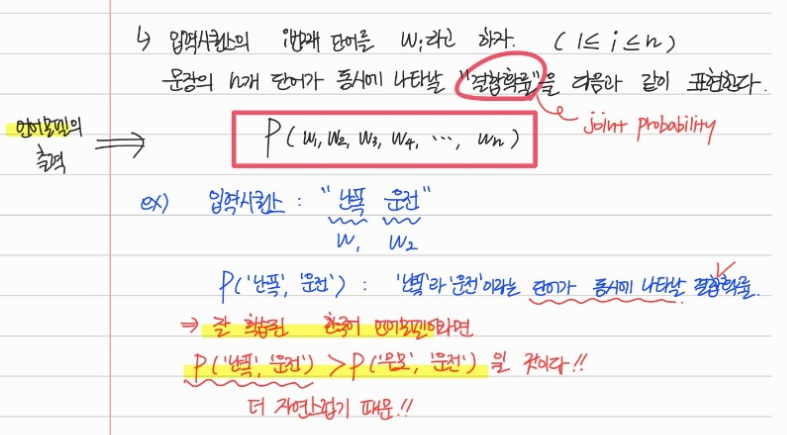 ↳ 입력시퀀스의 i번째 단어를 wᵢ라고 하자. (1≤ i ≤ n)
문장의 n개 단어가 동시에 나타날 "결합확률"을 다음과 같이 표현한다.
joint probability
언어모델의
출력
⇒ P(w₁, w₂, w₃, w₄, ⋯, wₙ)
ex) 입력시퀀스 : "난폭 운전"
w₁ w₂
P('난폭', '운전') : '난폭'과 '운전'이라는 단어가 동시에 나타날 결합확률.
⇒ 잘 학습된 한국어 언어모델이라면
P('난폭', '운전') > P('음모', '운전') 일 것이다!!
더 자연스럽기 때문!!